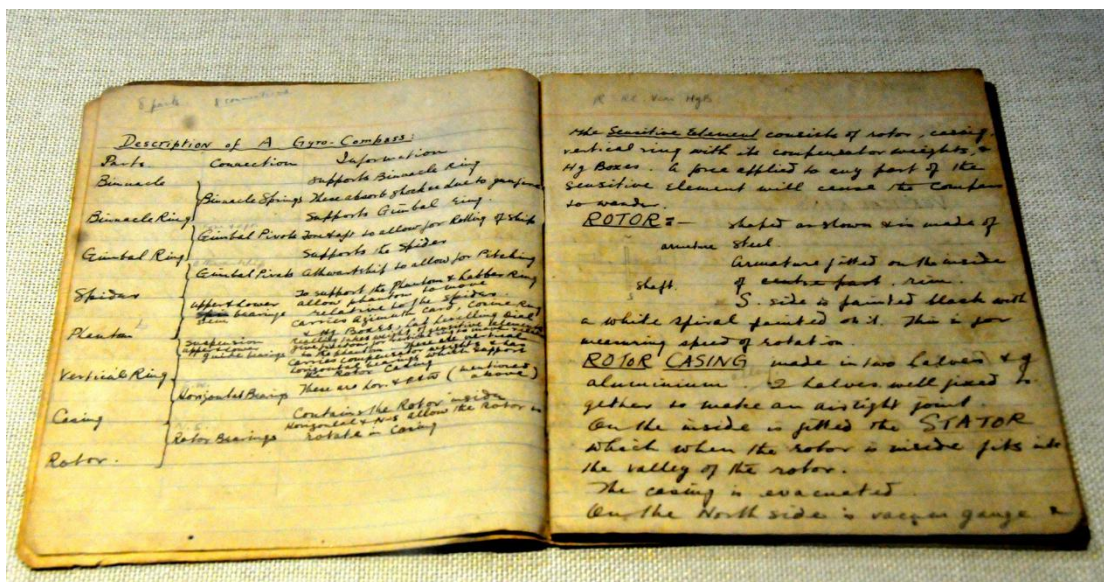 8 parts 8 connections
Description of A Gyro-Compass:
Parts Connection Information
Binnacle supports Binnacle ring
Binnacle Springs These absorb shocks due to gunfire
Binnacle Ring Supports Gimbal Ring.
Gimbal Pivots Fore & aft to allow for Rolling of Ship
Gimbal Ring Supports the Spider
Gimbal Pivots Athwartship to allow for Pitching
Spider To support the Phantom & Lubber Ring
upper & Lower bearings allow phantom to move
relative to the spider.
Phantom Carries Azimuth Card, Cosine Ring
& Hg Boxes, has
suspension takes weight of sensitive element
upper & lower guide bearings
Vertical Ring Carries Compensator weights & has
horizontal bearings which support
the Rotor Casing
Horizontal Bearings These are hor. & E&W (mentioned above)
Casing Contains the Rotor inside
Rotor Bearings Horizontal & N-S allow the Rotor to
rotate in Casing
Rotor.
The Sensitive Element consists of rotor, casing,
vertical ring with its compensator weights, &
Hg Boxes. A force applied to any part of the
sensitive element will cause the Compass
to wander.
ROTOR:- shaped as shown & is made of
armature steel
Armature fitted on the inside
shaft. of centre part. rim.
S. side is painted black with
a white spiral painted on it. This is for
measuring speed of rotation.
ROTOR CASING made in two halves & of
aluminium. 2 halves well fixed to
gether to make an airtight joint.
On the inside is fitted the STATOR
which when the rotor is inside fits into
the valley of the rotor.
The casing is evacuated.
On the North side is gauge &